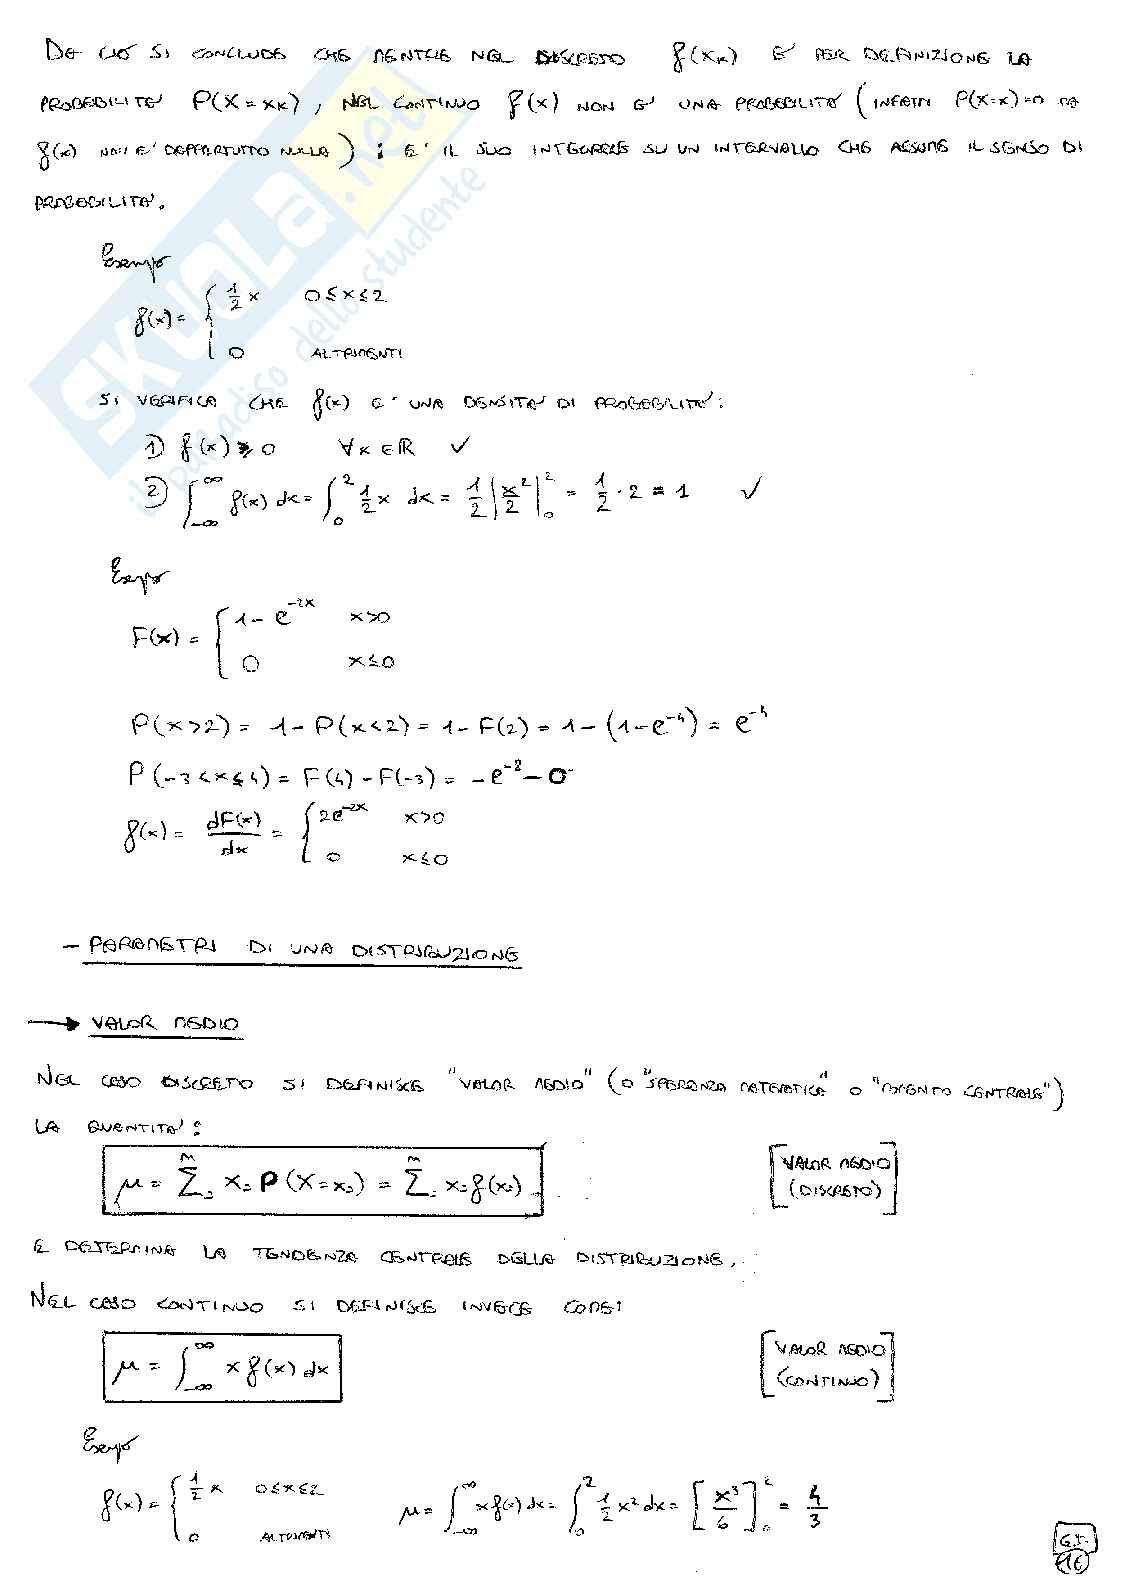 DA CIÒ SI CONCLUDE CHE MENTRE NEL DISCRETO f(xₖ) E' PER DEFINIZIONE LA
PROBABILITA' P(X=xₖ), NEL CONTINUO f(x) NON E' UNA PROBABILITA' (INFATTI P(X=x)=0 MA
f(x) NON E' DAPPERTUTTO NULLA); E' IL SUO INTEGRALE SU UN INTERVALLO CHE ASSUME IL SENSO DI
PROBABILITA'.
Esempio
f(x) = { 1/2 x 0≤x≤2
0 ALTRIMENTI
SI VERIFICA CHE f(x) E' UNA DENSITA' DI PROBABILITA':
1) f(x) ≥ 0 ∀x∈ℝ ✓
2) ∫_{-∞}^{∞} f(x) dx = ∫_0^2 1/2 x dx = 1/2 |x²/2|_0^2 = 1/2 · 2 = 1 ✓
Esempio
F(x) = { 1-e^{-2x} x>0
0 x≤0
P(x>2) = 1-P(x<2) = 1-F(2) = 1-(1-e^{-4}) = e^{-4}
P(-3<x≤4) = F(4)-F(-3) = -e^{-8}-0
f(x) = dF(x)/dx = { 2e^{-2x} x>0
0 x≤0
- PARAMETRI DI UNA DISTRIBUZIONE
→ VALOR MEDIO
NEL CASO DISCRETO SI DEFINISCE "VALOR MEDIO" (O "SPERANZA MATEMATICA" O "MOMENTO CENTRALE")
LA QUANTITA':
μ = Σ xⱼ P(X=xⱼ) = Σ xⱼ f(xⱼ)
[VALOR MEDIO
(DISCRETO)]
E DETERMINA LA TENDENZA CENTRALE DELLA DISTRIBUZIONE.
NEL CASO CONTINUO SI DEFINISCE INVECE COME:
μ = ∫_{-∞}^{∞} x f(x) dx
[VALOR MEDIO
(CONTINUO)]
Esempio
f(x) = { 1/2 x 0≤x≤2
0 ALTRIMENTI
μ = ∫_{-∞}^{∞} x f(x) dx = ∫_0^2 1/2 x² dx = [x³/6]_0^2 = 4/3
G.J.
16
SKUOLA.net
il paradiso dello studente